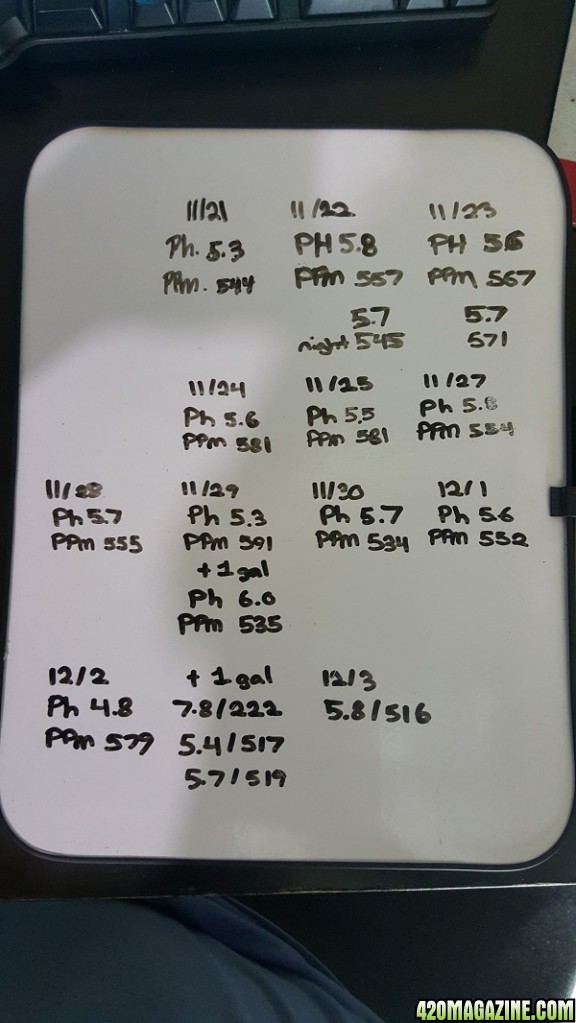 11/21 11/22 11/23
Ph. 5.3 PH 5.8 PH 5.6
PPm. 544 PPm 557 PPM 567
5.7 5.7
night 545 571
11/24 11/25 11/27
Ph 5.6 Ph 5.5 Ph 5.6
PPm 581 PPm 581 PPM 554
11/28 11/29 11/30 12/1
Ph 5.7 Ph 5.3 Ph 5.7 Ph 5.6
PPm 555 PPm 591 PPm 534 PPm 552
+ 1 gal
Ph 6.0
PPm 535
12/2 + 1 gal 12/3
Ph 4.8 7.8/222 5.8/516
PPm 579 5.4/517
5.7/519
420MAGAZINE.COM